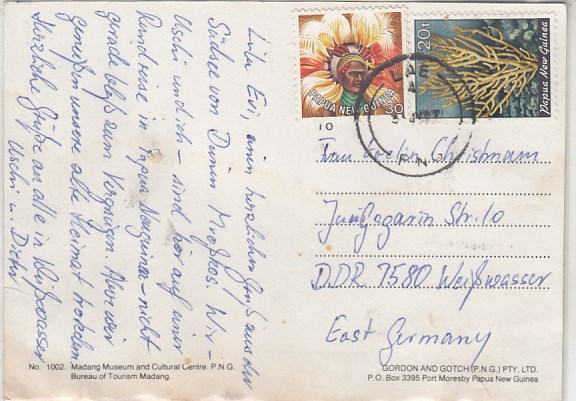 Liebe Evi, einen herzlichen Gruß aus der
Südsee von Deinen Wir –
Uschi und ich – sind hier auf einer
Rundreise in Papua Neuguinea – nicht
gerade bloß zum Vergnügen. Aber wir
genießen unsere alte Heimat trotzdem
Herzliche Grüße an alle in Weißwasser
Uschi u. Dieter
PAPUA NEW GUINEA
30
20t
Papua New Guinea
LAE
P.N.G.
10
Frau Evelin Christmann
Juri Gagarin Str. 10
DDR 7580 Weißwasser
East Germany
No. 1002. Madang Museum and Cultural Centre. P.N.G.
Bureau of Tourism Madang.
GORDON AND GOTCH (P.N.G.) PTY. LTD.
P.O. Box 3395 Port Moresby Papua New Guinea